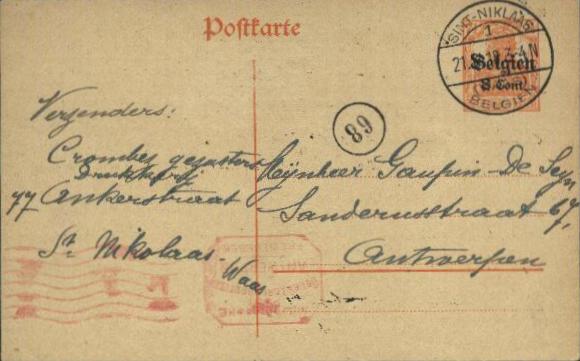 Postkarte
SINT-NIKLAAS
1
Belgien
8 Cent.
BELGIEN
89
Verzenders:
Crombez
Drukkerij
77 Ankerstraat
St Nikolaas
Waas
Mijnheer Gaupin-De Seyn
Sanderusstraat 67,
Antwerpen